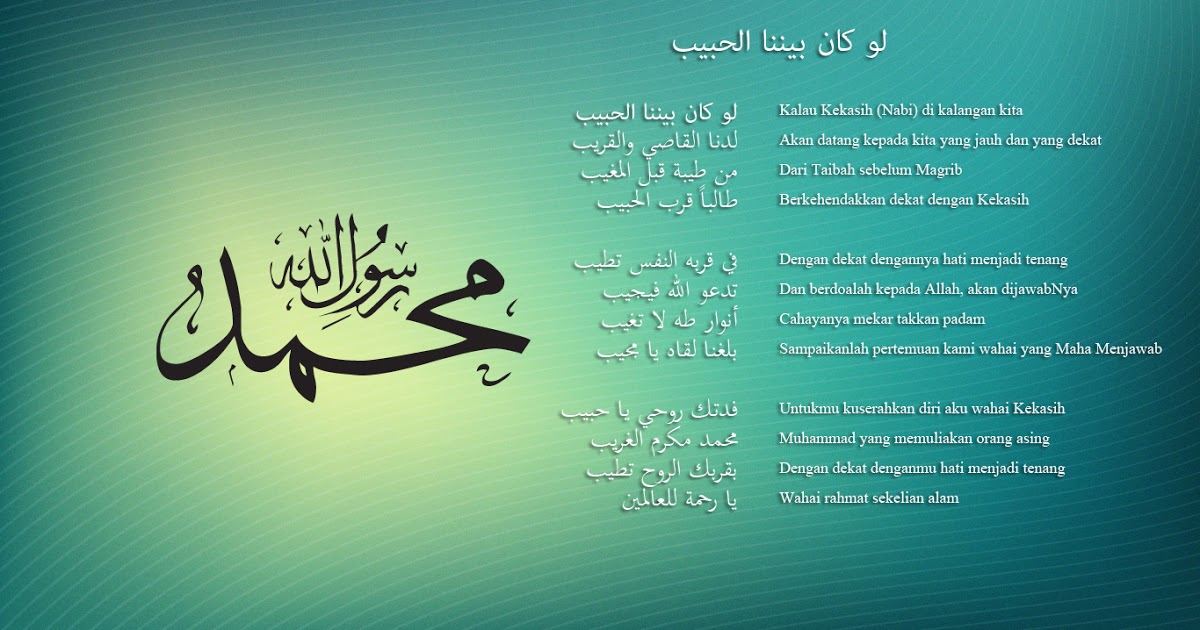 لو كان بيننا الحبيب
محمد
رسول الله
لو كان بيننا الحبيب
Kalau Kekasih (Nabi) di kalangan kita
لدنا القاصي والقريب
Akan datang kepada kita yang jauh dan yang dekat
من طيبة قبل المغيب
Dari Taibah sebelum Magrib
طالباً قرب الحبيب
Berkehendakkan dekat dengan Kekasih
في قربه النفس تطيب
Dengan dekat dengannya hati menjadi tenang
تدعو الله فيجيب
Dan berdoalah kepada Allah, akan dijawabNya
أنوار طه لا تغيب
Cahayanya mekar takkan padam
بلغنا لقاه يا مجيب
Sampaikanlah pertemuan kami wahai yang Maha Menjawab
فدتك روحي يا حبيب
Untukmu kuserahkan diri aku wahai Kekasih
محمد مكرم الغريب
Muhammad yang memuliakan orang asing
بقربك الروح تطيب
Dengan dekat denganmu hati menjadi tenang
يا رحمة للعالمين
Wahai rahmat sekelian alam